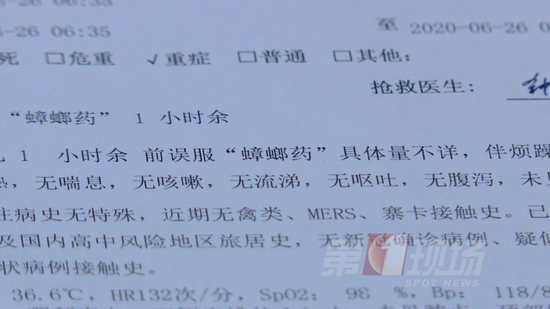 -26 06:35
-26 06:35 至 2020-06-26 0
死 □危重 √重症 □普通 □其他:
抢救医生:
“蟑螂药” 1 小时余
1 小时余 前误服“蟑螂药”具体量不详，伴烦躁
，无喘息，无咳嗽，无流涕，无呕吐，无腹泻，未
病史无特殊，近期无禽类、MERS、寨卡接触史。已
及国内高中风险地区旅居史，无新冠确诊病例、疑似
状病例接触史。
36.6℃，HR132次/分，SpO2: 98 %，Bp: 118/8
第1现场
SPOT NEWS